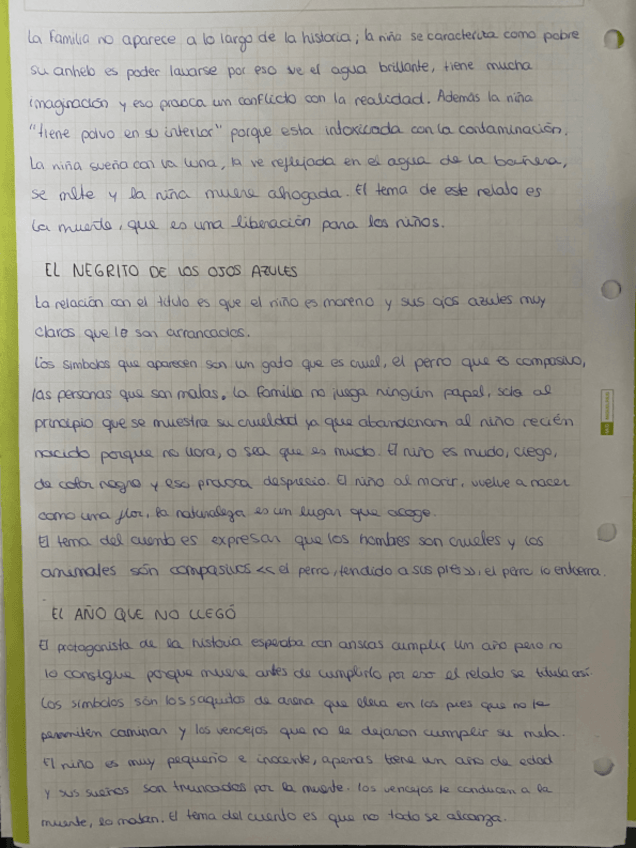 La familia no aparece a lo largo de la historia; la niña se caracteriza como pobre
su anhelo es poder lavarse por eso ve el agua brillante, tiene mucha
imaginación y eso provoca un conflicto con la realidad. Además la niña
"tiene polvo en su interior" porque esta intoxicada con la contaminación.
La niña sueña con la luna, la ve reflejada en el agua de la bañera,
se mete y la niña muere ahogada. El tema de este relato es
la muerte, que es una liberación para los niños.
EL NEGRITO DE LOS OJOS AZULES
La relación con el título es que el niño es moreno y sus ojos azules muy
claros que le son arrancados.
Los símbolos que aparecen son un gato que es cruel, el perro que es compasivo,
las personas que son malas. La familia no juega ningún papel, solo al
principio que se muestra su crueldad ya que abandonan al niño recién
nacido porque no llora, o sea que es mudo. El niño es mudo, ciego,
de color negro y eso provoca desprecio. El niño al morir, vuelve a nacer
como una flor, la naturaleza es un lugar que acoge.
El tema del cuento es expresar que los hombres son crueles y los
animales són compasivos <<el perro, tendido a sus pies>>, el perro lo entierra.
EL AÑO QUE NO LLEGÓ
El protagonista de la historia esperaba con ansias cumplir un año pero no
lo consigue porque muere antes de cumplirlo por eso el relato se titula así.
Los símbolos són los saquitos de arena que lleva en los pies que no le
permiten caminar y los vencejos que no le dejaron cumplir su meta.
El niño es muy pequeño e inocente, apenas tiene un año de edad
y sus sueños son truncados por la muerte. Los vencejos le conducen a la
muerte, lo matan. El tema del cuento es que no todo se alcanza.